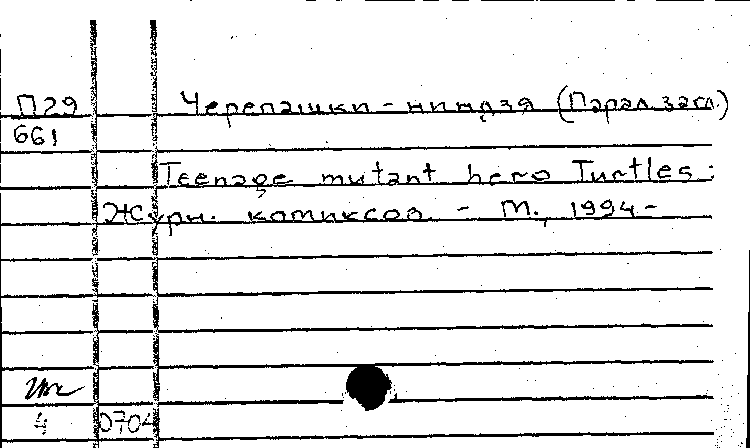 П29 Черепашки-ниндзя (Парал. загл.)
661
Teenage mutant hero Turtles:
Журн. комиксов. - М., 1994-
4 0704